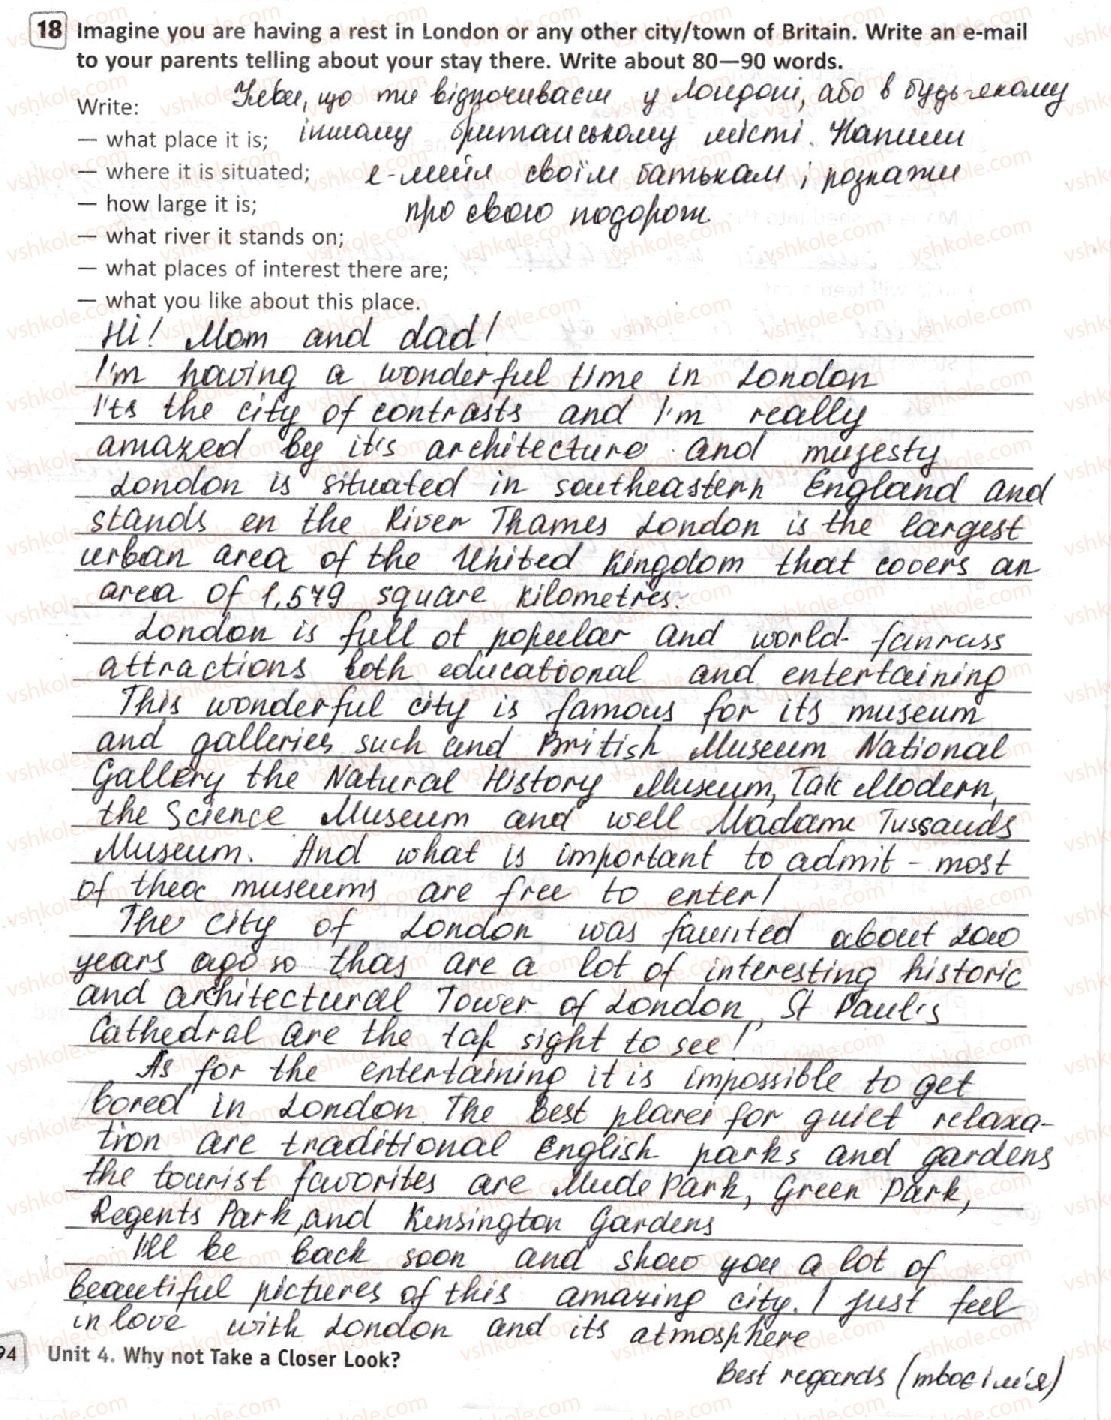 18 Imagine you are having a rest in London or any other city/town of Britain. Write an e-mail
to your parents telling about your stay there. Write about 80—90 words.
Write:
Уяви, що ти відпочиваєш у Лондоні, або в будь-якому
— what place it is;
іншому британському місті. Напиши
— where it is situated;
е-мейл своїм батькам і розкажи
— how large it is;
про свою подорож
— what river it stands on;
— what places of interest there are;
— what you like about this place.
Hi! Mom and dad!
I'm having a wonderful time in London
I'ts the city of contrasts and I'm really
amazed by it's architecture and mujesty
London is situated in southeastern England and
stands en the River Thames London is the largest
urban area of the United Kingdom that covers an
area of 1,579 square kilometres.
London is full of popular and world-
attractions both educational and entertaining
This wonderful city is famous for its museum
and galleries such and British Museum National
Gallery the Natural History Museum, Tak Modern,
the Science Museum and well Madame Tussauds
Museum. And what is important to admit - most
of museums are free to enter!
The city of London was about 2000
years ago so thas are a lot of interesting historic
and architectural Tower of London, St Paul's
Cathedral are the tap sight to see!
As for the entertaining it is impossible to get
bored in London The best for quiet relaxa-
tion are traditional English parks and gardens
the tourist favorites are Park, Green Park,
Regents Park, and Kensington Gardens
I'll be back soon and show you a lot of
beautiful pictures of this amazing city. I just feel
in love with London and its atmosphere
94 Unit 4. Why not Take a Closer Look?
Best regards (твоє ім'я)
vshkole.com